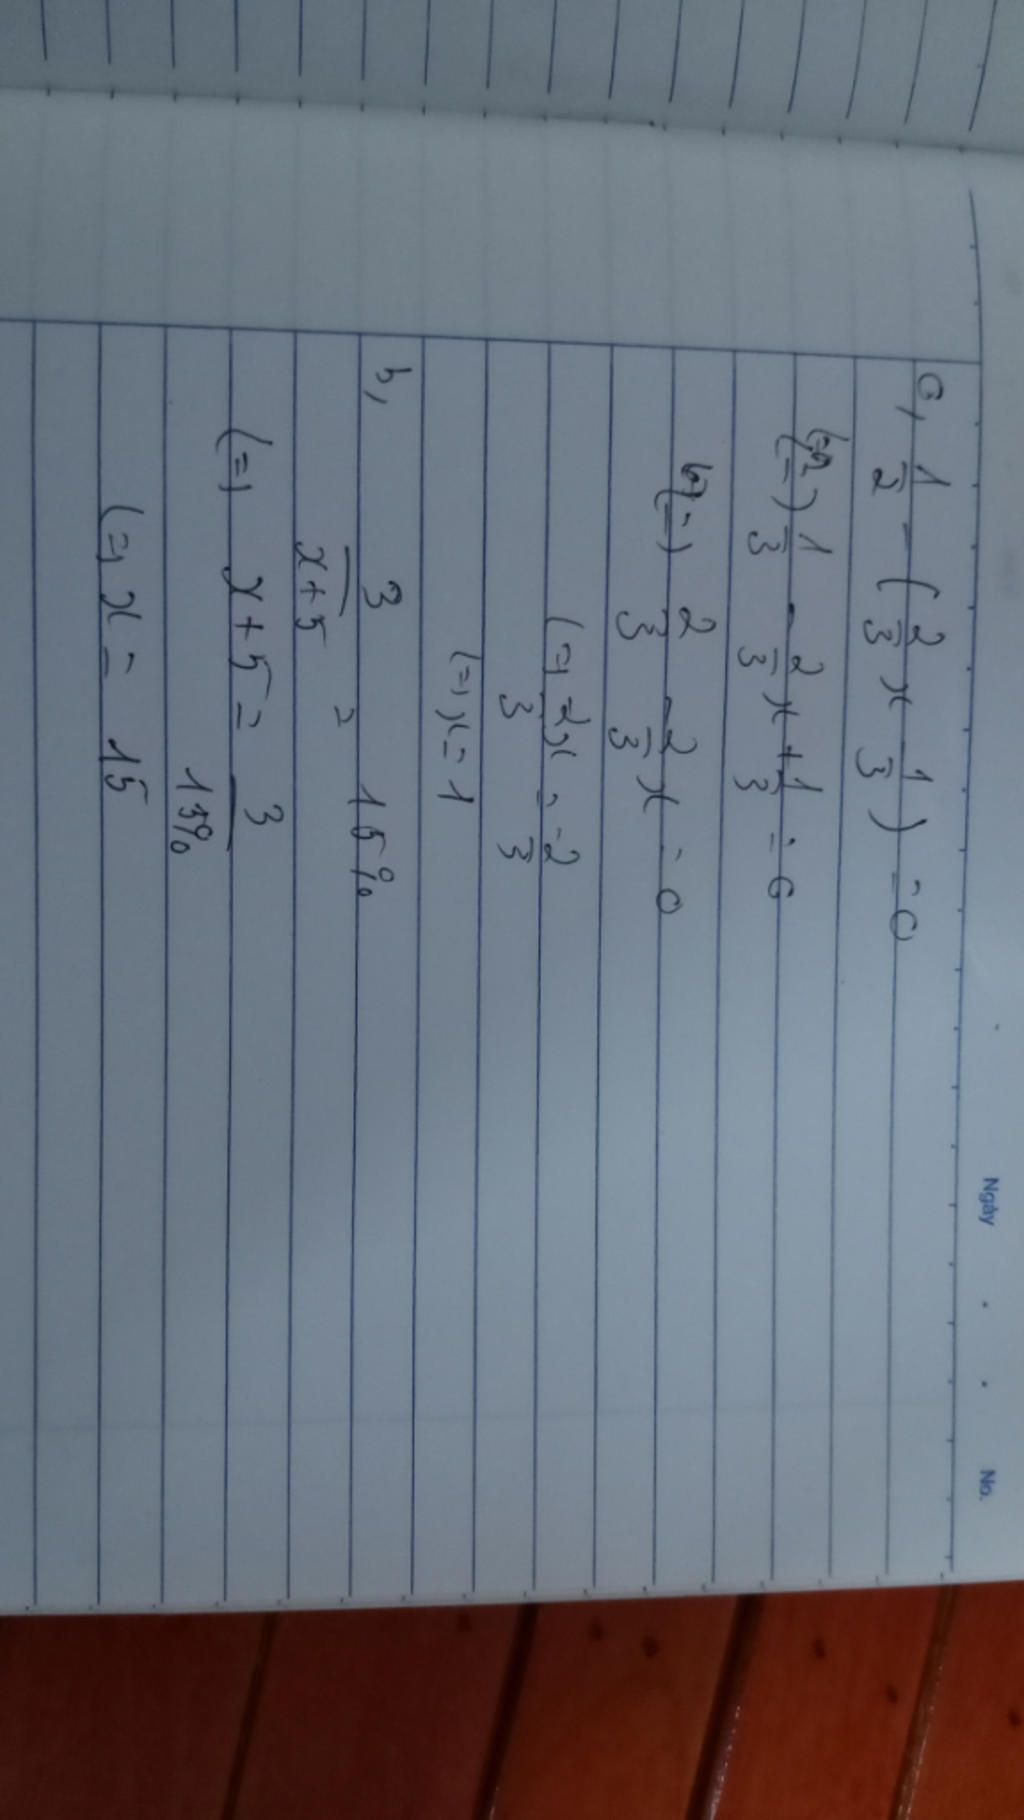 Ngày . . No.
a, 1/2 - (2/3 x - 1/3) = 0
(=) 1/3 - 2/3 x + 1/3 = 0
(=) 2/3 - 2/3 x = 0
(=) -2/3 x = -2/3
(=) x = 1
b, 3/(x+5) = 15%
(=) x + 5 = 3/15%
(=) x = 15